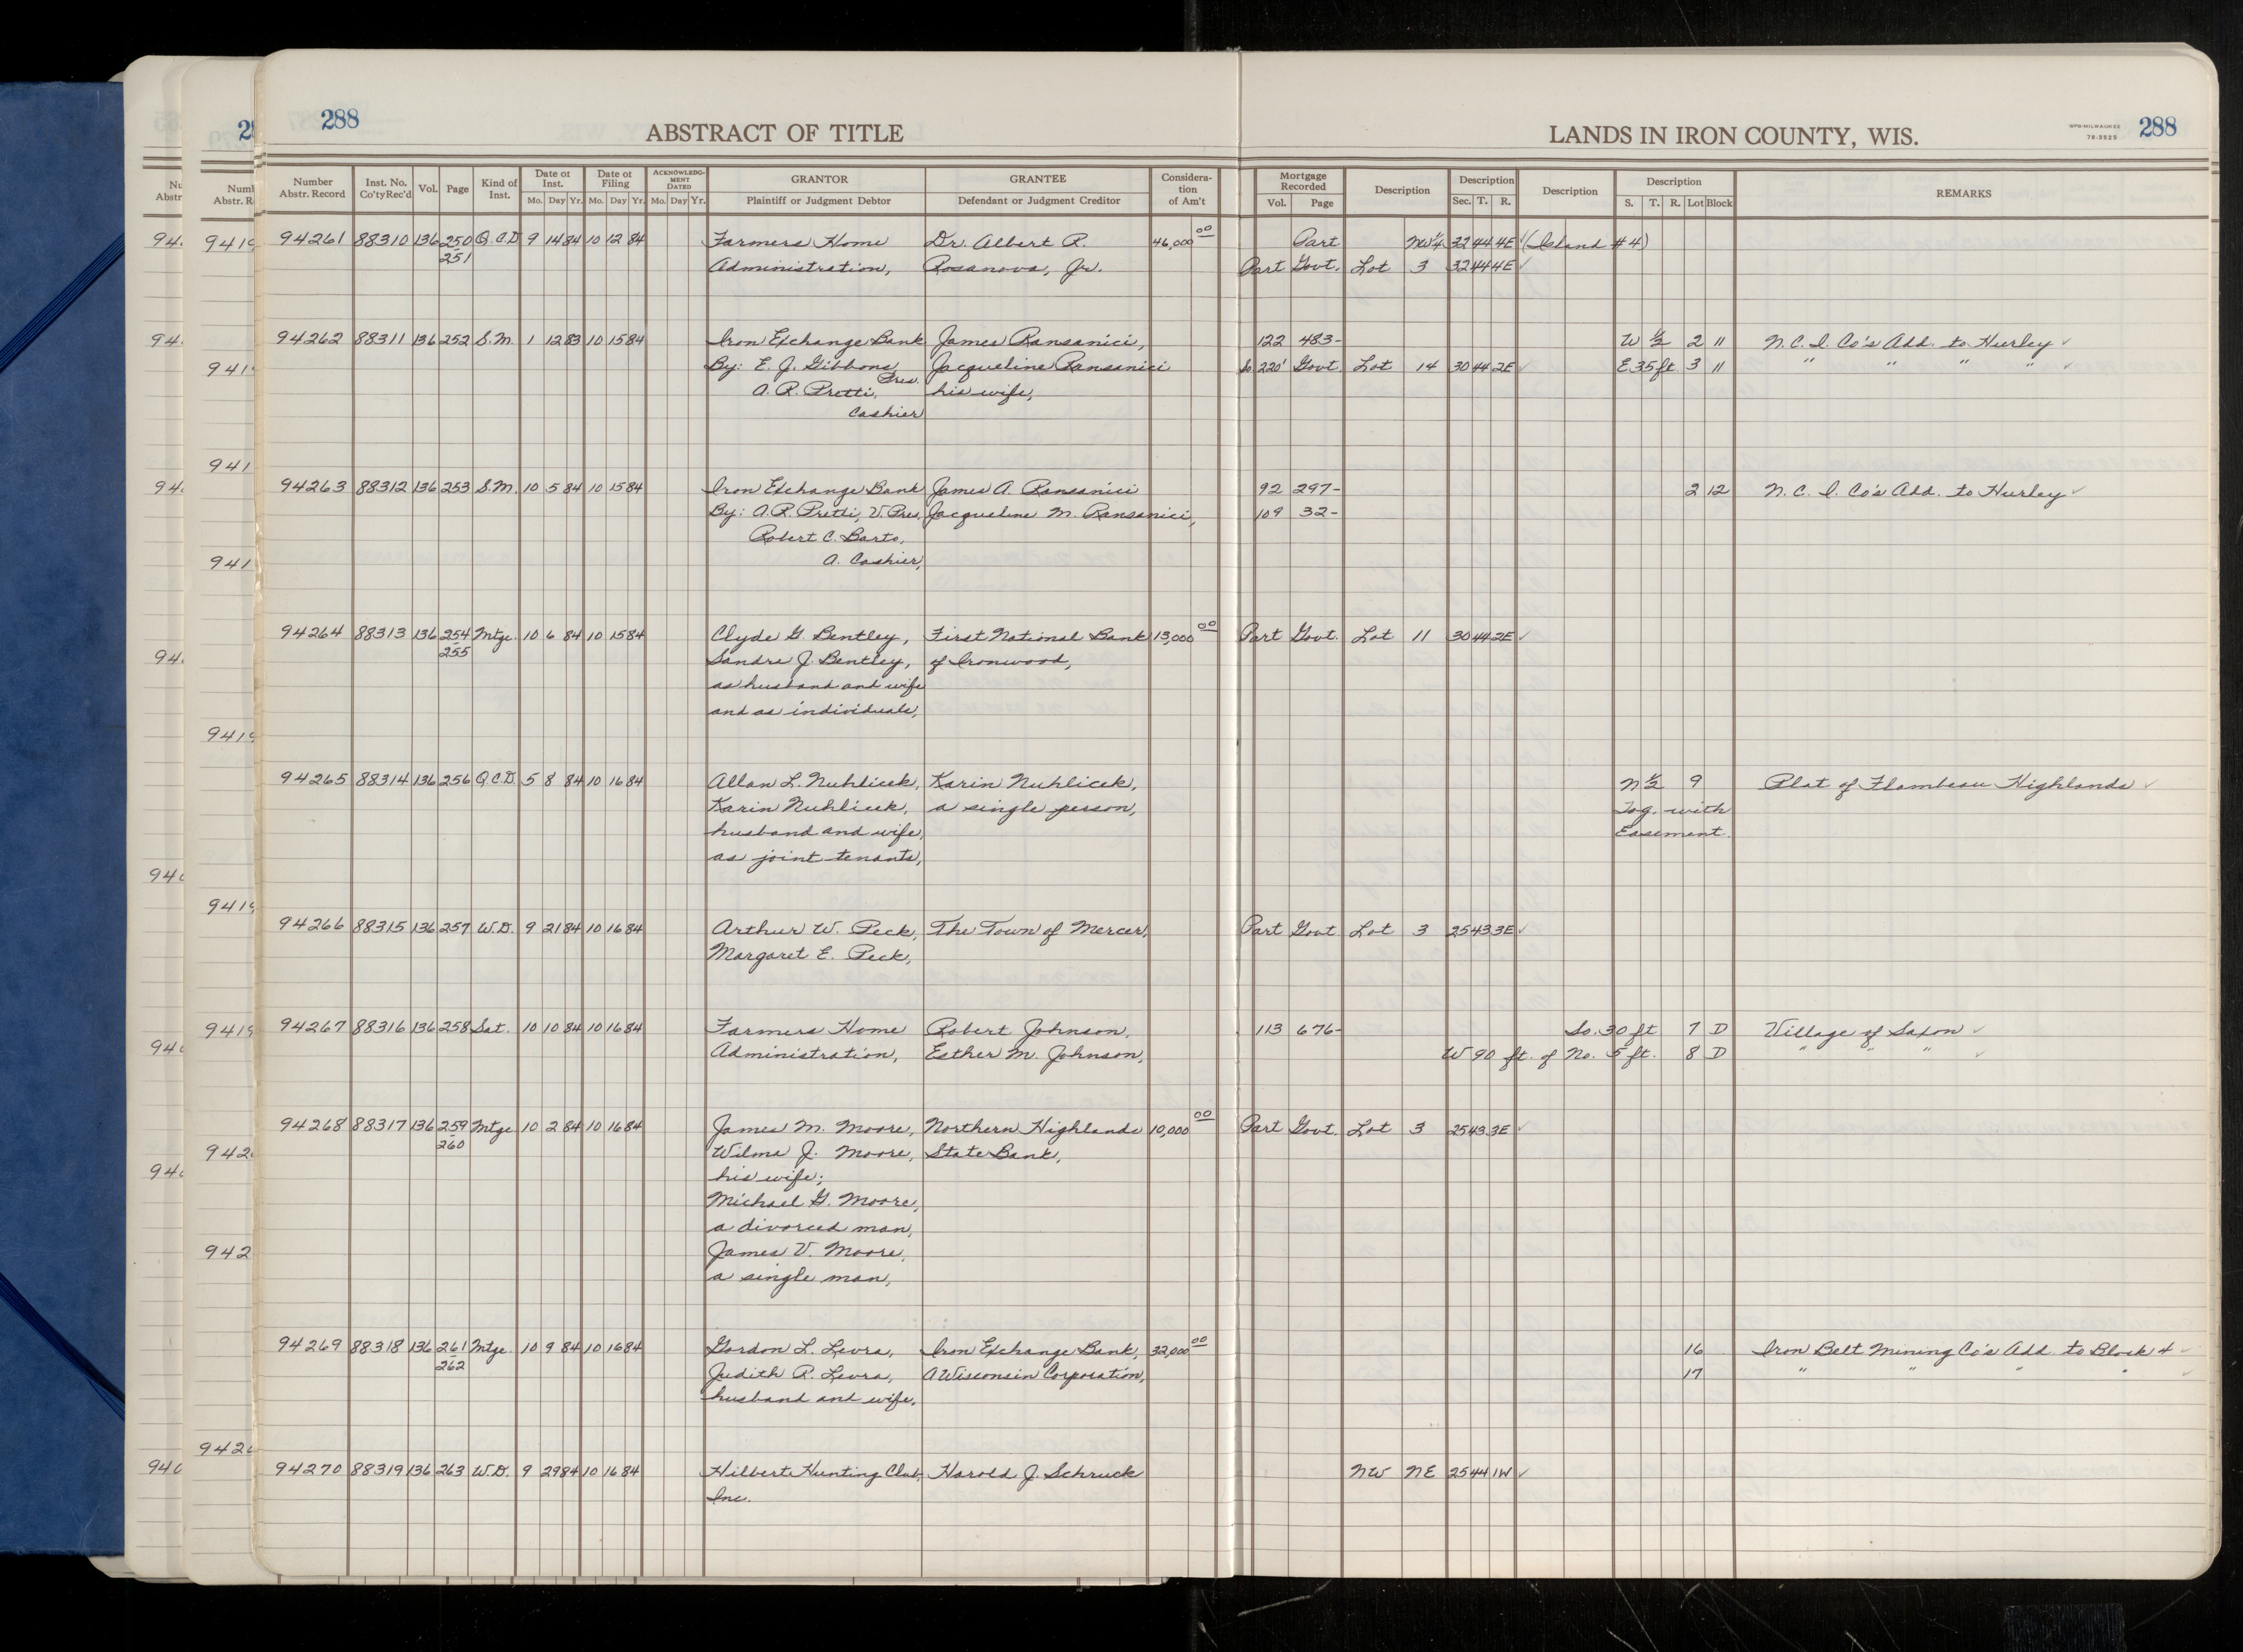 288
ABSTRACT OF TITLE
LANDS IN IRON COUNTY, WIS.
WPB-MILWAUKEE
78-3925
288
Number Abstr. Record | Inst. No. Co'ty Rec'd | Vol. | Page | Kind of Inst. | Date of Inst. Mo. Day Yr. | Date of Filing Mo. Day Yr. | ACKNOWLEDGMENT DATED Mo. Day Yr. | GRANTOR Plaintiff or Judgment Debtor | GRANTEE Defendant or Judgment Creditor | Consideration of Am't | Mortgage Recorded Vol. Page | Description | Description Sec. T. R. | Description | Description S. T. R. Lot Block | REMARKS
94261 88310 136 250 Q.C.D. 9 14 84 10 12 84 Farmers Home Dr. Albert R. 46,000 00 Part NW 1/4 32 44 4E ✓ (Island #4)
251 Administration, Rosanova, Jr. Part Govt. Lot 3 32 44 4E ✓
94262 88311 136 252 S.M. 1 12 83 10 15 84 Iron Exchange Bank James Ransanici, 122 483- W 1/2 2 11 N.C.I. Co's Add. to Hurley ✓
By: E. J. Gibbons, Jacqueline Ransanici So 220' Govt. Lot 14 30 44 2E ✓ E 35 ft 3 11 " " " " ✓
Pres.
A. R. Pretti, his wife,
Cashier
94263 88312 136 253 S.M. 10 5 84 10 15 84 Iron Exchange Bank James A. Ransanici 92 297- 2 12 N.C.I. Co's Add. to Hurley ✓
By: A.R. Pretti, V. Pres, Jacqueline M. Ransanici, 109 32-
Robert C. Barto,
A. Cashier,
94264 88313 136 254 Mtge. 10 6 84 10 15 84 Clyde G. Bentley, First National Bank 13,000 00 Part Govt. Lot 11 30 44 2E ✓
255 Sandra J. Bentley, of Ironwood,
as husband and wife
and as individuals,
94265 88314 136 256 Q.C.D. 5 8 84 10 16 84 Allan L. Nuhlicek, Karin Nuhlicek, N 1/2 9 Plat of Flambeau Highlands ✓
Karin Nuhlicek, a single person, Tog. with
husband and wife, Easement.
as joint tenants,
94266 88315 136 257 W.D. 9 21 84 10 16 84 Arthur W. Peck, The Town of Mercer, Part Govt Lot 3 25 43 3E ✓
Margaret E. Peck,
94267 88316 136 258 Sat. 10 10 84 10 16 84 Farmers Home Robert Johnson, 113 676- So. 30 ft 7 D Village of Saxon ✓
Administration, Esther M. Johnson, W 90 ft. of No. 5 ft. 8 D " " " ✓
94268 88317 136 259 Mtge 10 2 84 10 16 84 James M. Moore, Northern Highlands 10,000 00 Part Govt. Lot 3 25 43 3E ✓
260 Wilma J. Moore, State Bank,
his wife;
Michael G. Moore,
a divorced man,
James V. Moore,
a single man,
94269 88318 136 261 Mtge. 10 9 84 10 16 84 Gordon L. Levra, Iron Exchange Bank, 32,000 00 16 Iron Belt Mining Co's Add. to Block 4 ✓
262 Judith R. Levra, A Wisconsin Corporation, 17 " " " " ✓
husband and wife,
94270 88319 136 263 W.D. 9 29 84 10 16 84 Hilbert Hunting Club, Harold J. Schruck NW NE 25 44 1W ✓
Inc.